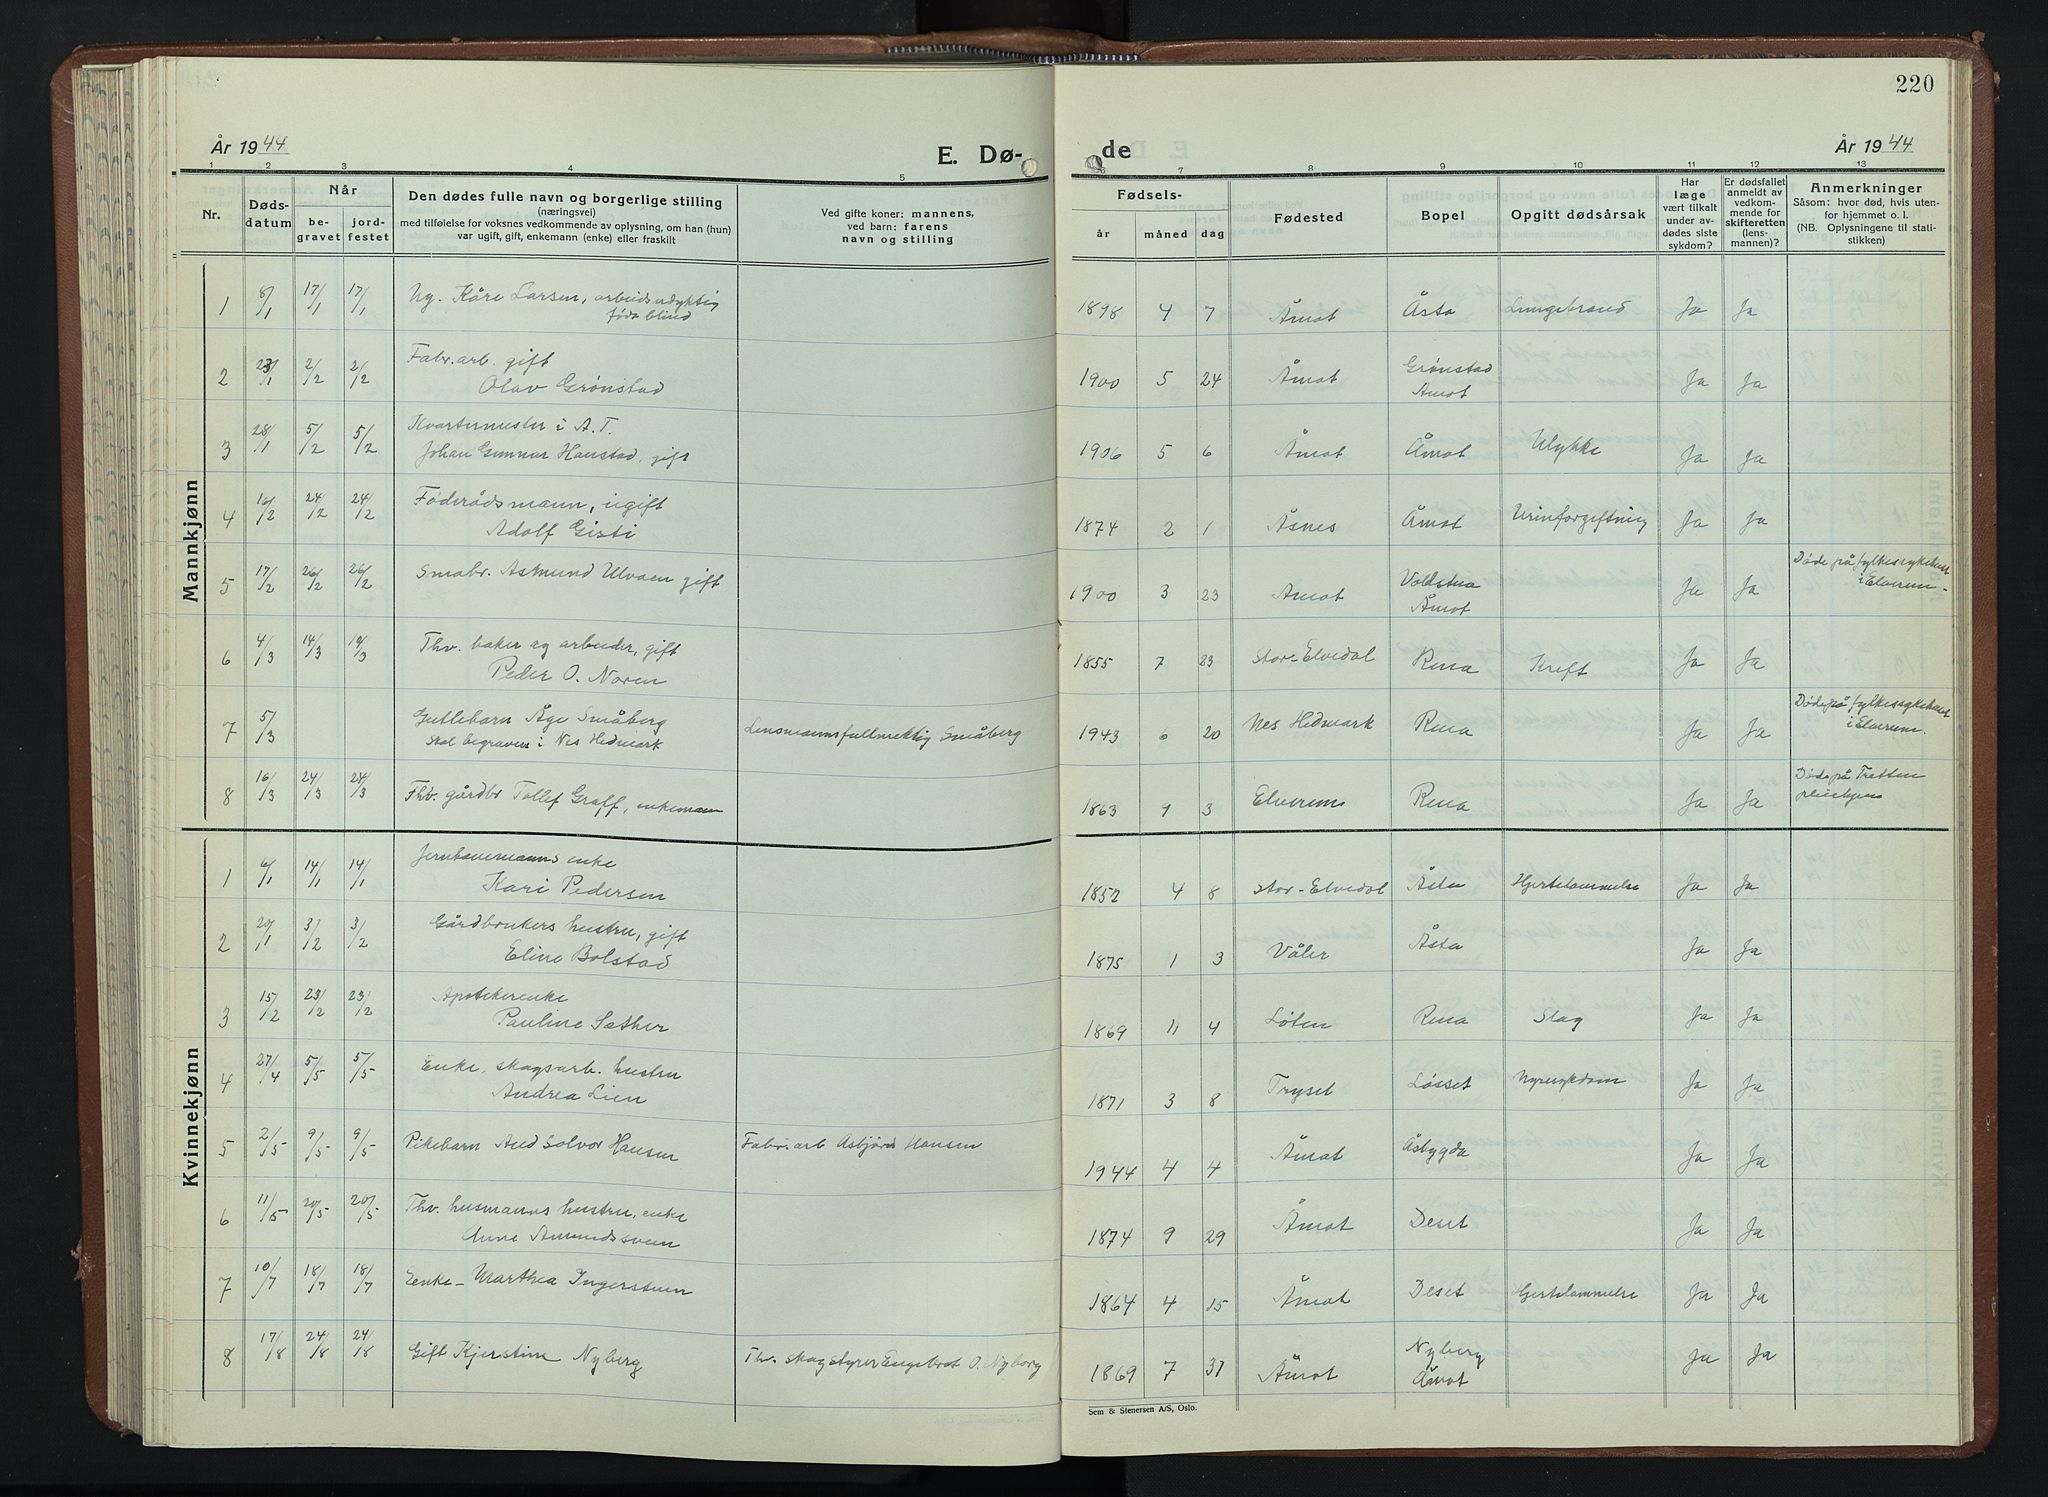 220
År 1944
E. Dø-
de
År 1944
1 2 3 4 5 6 7 8 9 10 11 12 13
Nr.
Døds-
datum
Når
be-
gravet
jord-
festet
Den dødes fulle navn og borgerlige stilling
(næringsvei)
med tilføielse for voksnes vedkommende av oplysning, om han (hun)
var ugift, gift, enkemann (enke) eller fraskilt
Ved gifte koner: mannens,
ved barn: farens
navn og stilling
Fødsels-
år måned dag
Fødested
Bopel
Opgitt dødsårsak
Har
læge
vært tilkalt
under av-
dødes siste
sykdom?
Er dødsfallet
anmeldt av
vedkom-
mende for
skifteretten
(lens-
mannen)?
Anmerkninger
Såsom: hvor død, hvis uten-
for hjemmet o. l.
(NB. Oplysningene til stati-
stikken)
Mannkjønn
1 8/1 17/1 17/1 Ug. Kåre Larsen, arbeidsudyktig 1898 4 7 Åmot Åsta Lungebrand Ja Ja
født blind
2 23/1 2/2 2/2 Fabr.arb. gift
Olav Grønstad 1900 5 24 Åmot Grønstad Åmot Ja Ja
3 28/1 5/2 5/2 Kvartermester i A.T.
Johan Gunnar Hanstad, gift 1906 5 6 Åmot Åmot Ulykke Ja Ja
4 16/2 24/2 24/2 Føderådsmann, ugift
Adolf Gisti 1874 2 1 Åsnes Åmot Urinforgiftning Ja Ja
5 17/2 26/2 26/2 Småbr. Asmund Ulvåen gift 1900 3 23 Åmot Voldstua Åmot Ja Ja Døde på fylkessykehuset
i Elverum
6 4/3 14/3 14/3 Thv. baker og arbeider, gift
Peder O. Noren 1855 7 23 Stor-Elvedal Rena Kreft Ja Ja
7 5/3 Guttebarn Åge Småberg Lensmannsfullmektig Småberg 1943 6 20 Nes Hedmark Rena Ja Ja Døde på fylkessykehuset
Skal begraves i Nes Hedmark i Elverum
8 16/3 24/3 24/3 Fhv. gårdbr Tollef Graff, enkemann 1863 9 3 Elverum Rena Ja Ja Døde på Tretten
pleiehjem
Kvinnekjønn
1 6/1 14/1 14/1 Jernbanemanns enke
Kari Pedersen 1852 4 8 Stor-Elvedal Åsta Hjertelammelse Ja Ja
2 20/1 3/2 3/2 Gårdbrukers hustru, gift
Eline Bolstad 1875 1 3 Våler Åsta Ja Ja
3 15/2 23/2 23/2 Apotekerenke
Pauline Sæther 1869 11 4 Løten Rena Slag Ja Ja
4 27/4 5/5 5/5 Enke, skogsarb. hustru
Andrea Lien 1871 3 8 Trysel Løsset Nyresykdom Ja Ja
5 2/5 9/5 9/5 Pikebarn Aud Solvor Hansen Fabr.arb Asbjørn Hansen 1944 4 4 Åmot Åsbygda Ja Ja
6 11/5 20/5 20/5 Thv. husmanns hustru, enke
Anne Amundssveen 1874 9 29 Åmot Deset Ja Ja
7 10/7 18/7 18/7 Enke- Marthea Ingerstuen 1864 4 15 Åmot Deset Gjertelammelse Ja Ja
8 17/8 24/8 24/8 Gift Kjerstine Nyberg Thv. skogstyrer Engebret O. Nyborg 1869 7 31 Åmot Nyberg Åmot Ja Ja
Sem & Stenersen A/S, Oslo.